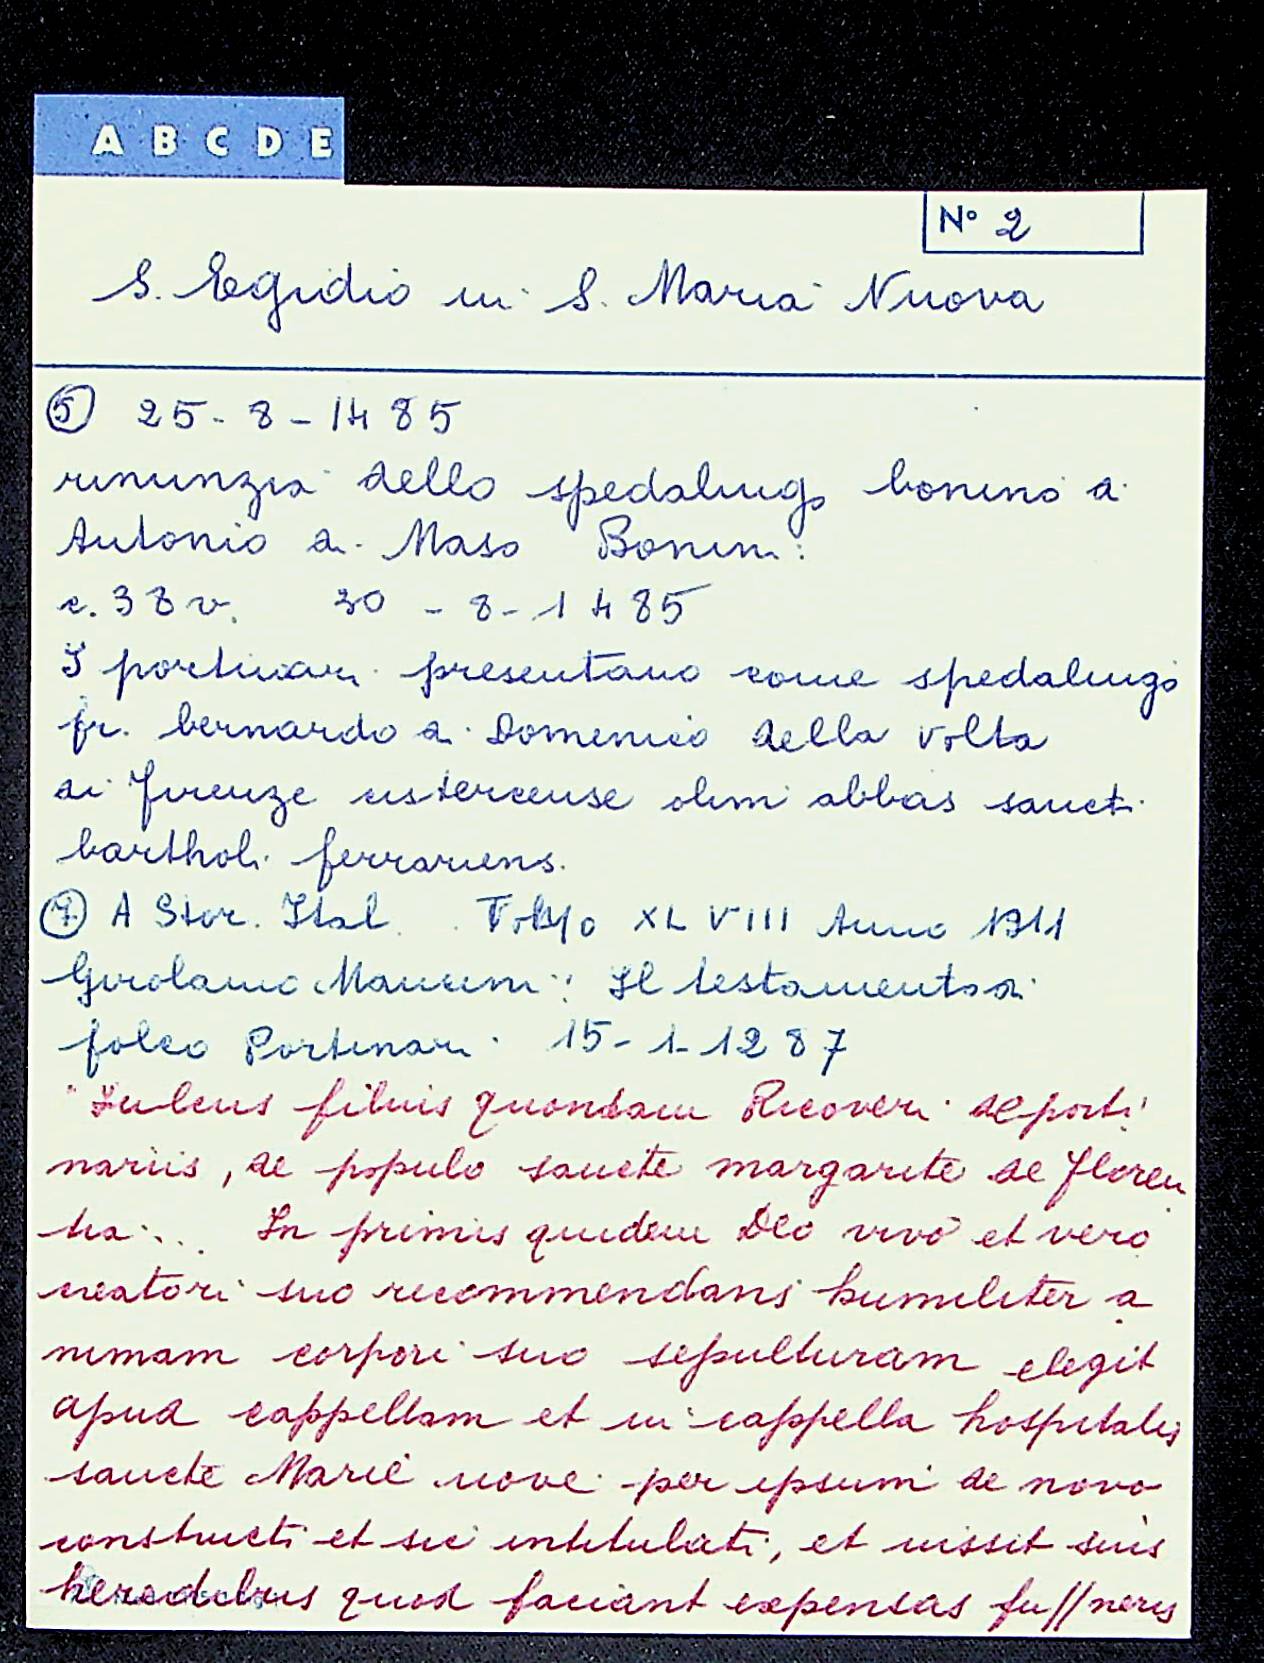 A B C D E
N° 2
S. Egidio in S. Maria Nuova
⑤ 25-8-1485
rinunzia dello spedalingo bonino di
Antonio di Maso Bonini:
c. 38 v. 30-8-1485
I portinari presentano come spedalingo
fr. bernardo di Domenico della volta
di firenze cistercense olim abbas sancti
bartholi ferrariens.
⑦ A Stor. Ital. Tomo XLVIII Anno 1911
Girolamo Mancini: Il testamento di
folco Portinari. 15-1-1287
"Fulcus filius quondam Ricoveri de porti
nariis, de populo sancte margarite de floren
tia... In primis quidem Deo vivo et vero
creatori suo recommendans humiliter a
nimam corpori suo sepulturam elegit
apud cappellam et in cappella hospitalis
sancte Marie nove per ipsum de novo
constructi et sic intitulati, et iussit suis
heredibus quod faciant expensas fu//neris